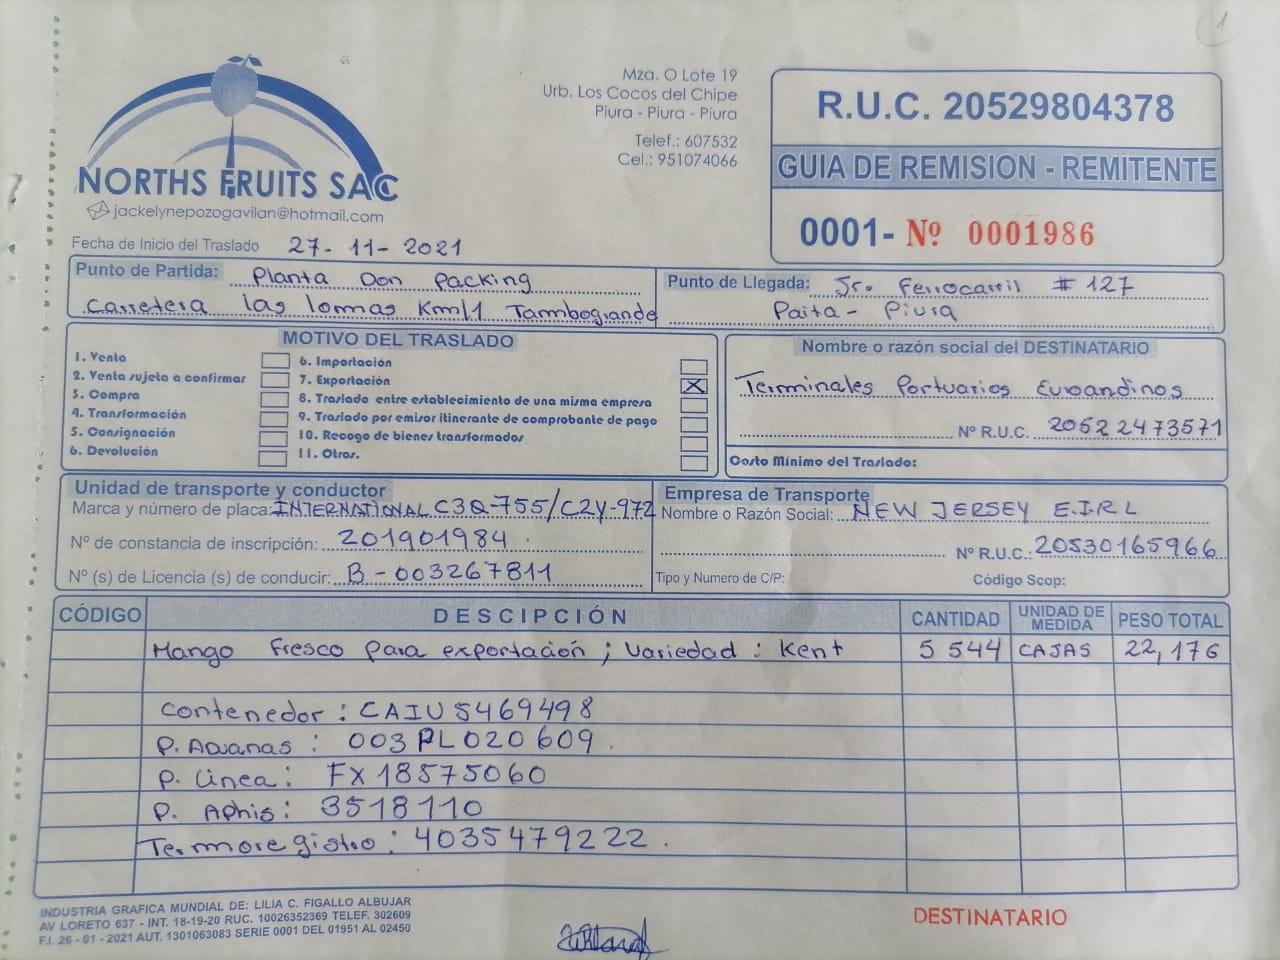 1
NORTHS FRUITS SAC
jackelynepozogavilan@hotmail.com
Mza. O Lote 19
Urb. Los Cocos del Chipe
Piura - Piura - Piura
Telef.: 607532
Cel.: 951074066
R.U.C. 20529804378
GUIA DE REMISION - REMITENTE
0001- Nº 0001986
Fecha de Inicio del Traslado 27-11-2021
Punto de Partida: Planta Don Packing
Carretera las lomas Km/1 Tambogrande
Punto de Llegada: Jro Ferrocarril # 127
Paita - Piura
MOTIVO DEL TRASLADO
1. Venta
2. Venta sujeta a confirmar
3. Compra
4. Transformación
5. Consignación
6. Devolución
6. Importación
7. Exportación X
8. Traslado entre establecimiento de una misma empresa
9. Traslado por emisor itinerante de comprobante de pago
10. Recogo de bienes transformados
11. Otros.
Nombre o razón social del DESTINATARIO
Terminales Portuarios Euroandinos
Nº R.U.C. 20522473571
Costo Mínimo del Traslado:
Unidad de transporte y conductor
Marca y número de placa: INTERNATIONAL C3Q-755/C2Y-972
Nº de constancia de inscripción: 201901984
Nº (s) de Licencia (s) de conducir: B-003267811
Empresa de Transporte
Nombre o Razón Social: NEW JERSEY E.I.R.L
Nº R.U.C.: 20530165966
Tipo y Numero de C/P: Código Scop:
CÓDIGO DESCIPCIÓN CANTIDAD UNIDAD DE MEDIDA PESO TOTAL
Mango Fresco para exportación ; Variedad : Kent 5 544 CAJAS 22,176
Contenedor : CAIU 5469498
P. Aduanas : 003PL020609.
P. Linea : FX18575060
P. Aphis : 3518110
Termoregistro : 4035479222.
INDUSTRIA GRAFICA MUNDIAL DE: LILIA C. FIGALLO ALBUJAR
AV LORETO 637 - INT. 18-19-20 RUC. 10026352369 TELEF. 302609
F.I. 26 - 01 - 2021 AUT. 1301063083 SERIE 0001 DEL 01951 AL 02450
DESTINATARIO